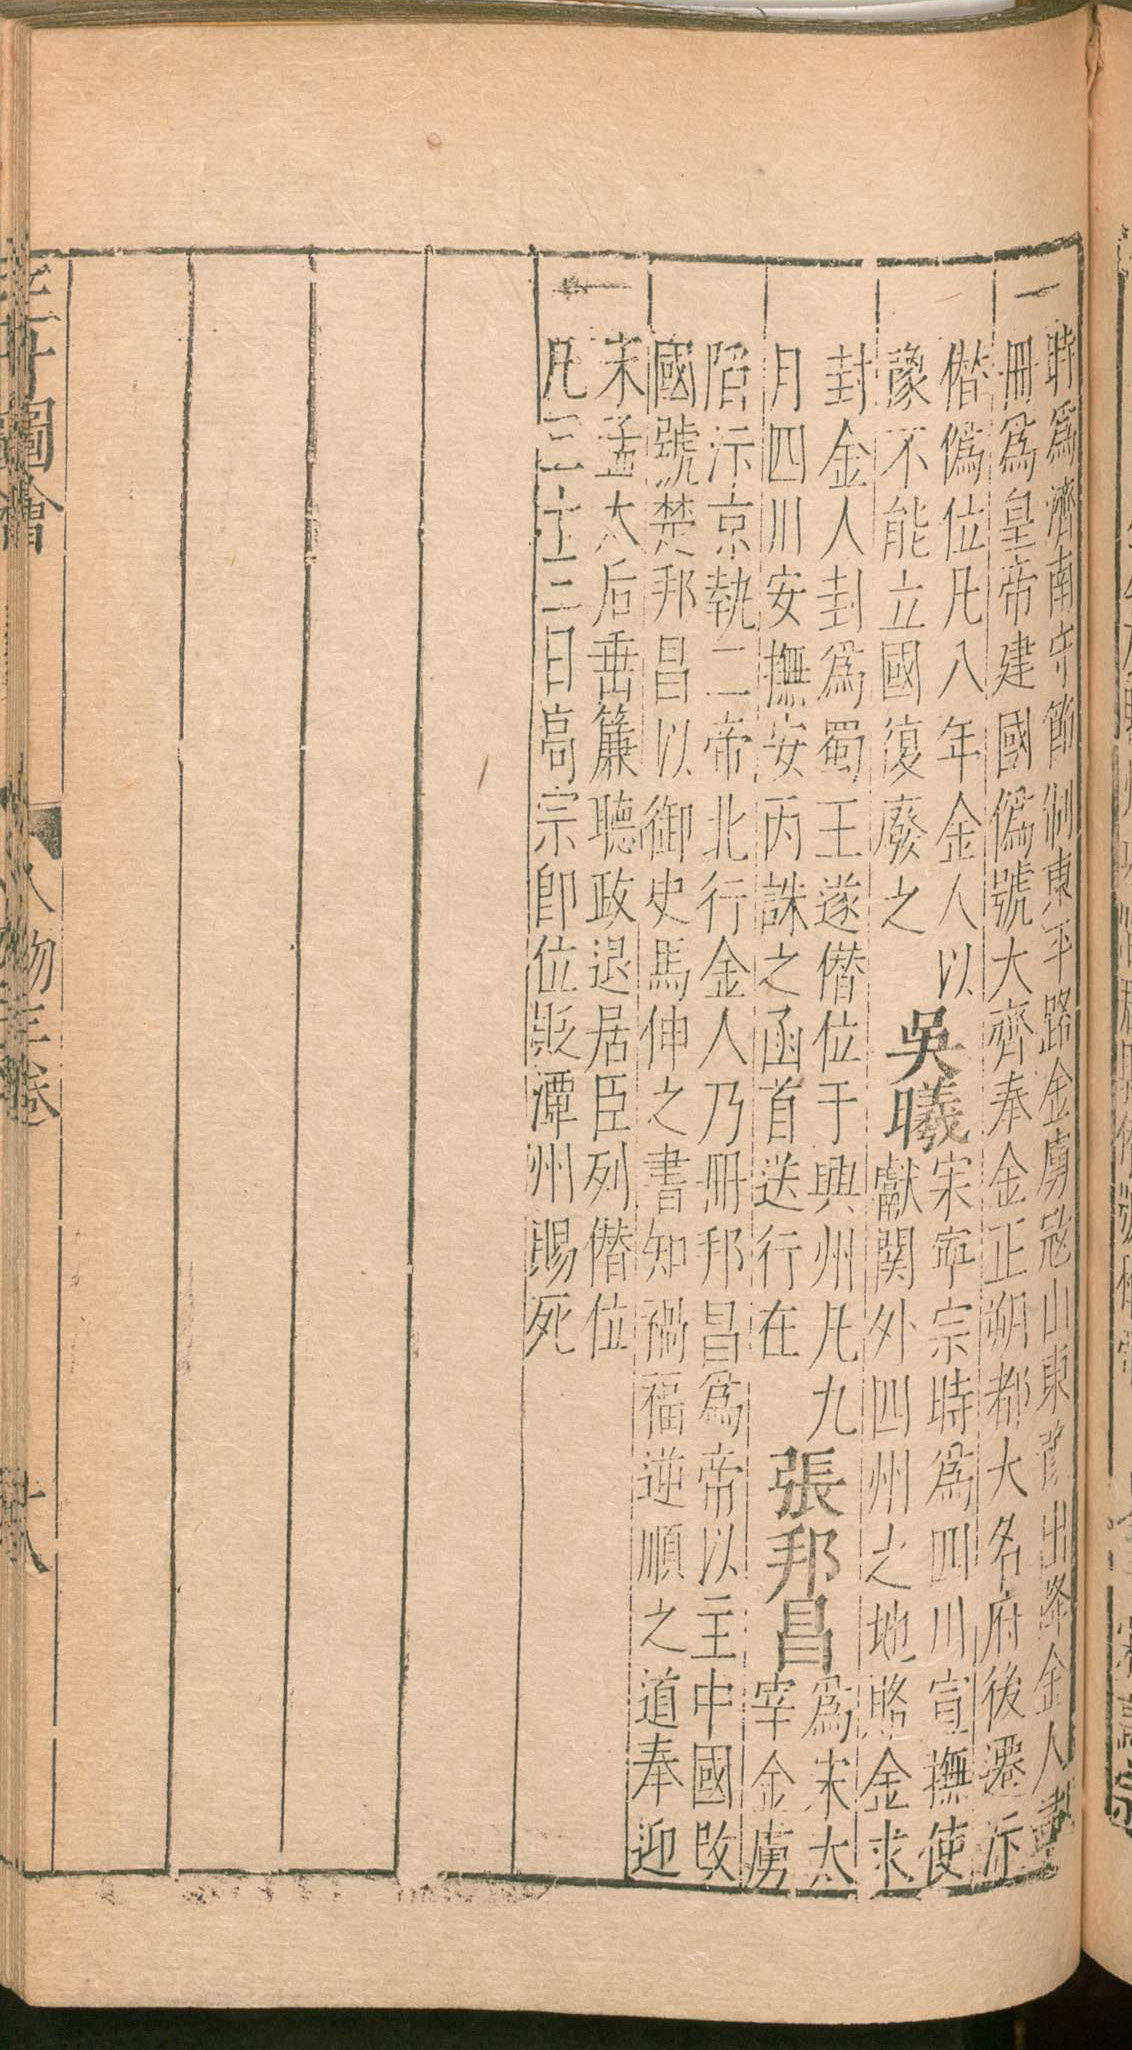 時為濟南守節制東平路金虜寇山東豫出降金人封
冊為皇帝建國偽號大齊奉金正朔都大名府後遷汴
僭偽位凡八年金人以
豫不能立國復廢之
吳曦
宋寧宗時為四川宣撫使
獻関外四州之地賂金求
封金人封為蜀王遂僭位于興州凡九
月四川安撫安丙誅之函首送行在
張邦昌
為宋太
宰金虜
陷汴京執二帝北行金人乃冊邦昌為帝以主中國改
國號楚邦昌以御史馬伸之書知禍福逆順之道奉迎
宋孟太后垂簾聽政退居臣列僭位
凡三十三日高宗即位貶潭州賜死
三才圖會
人物三卷